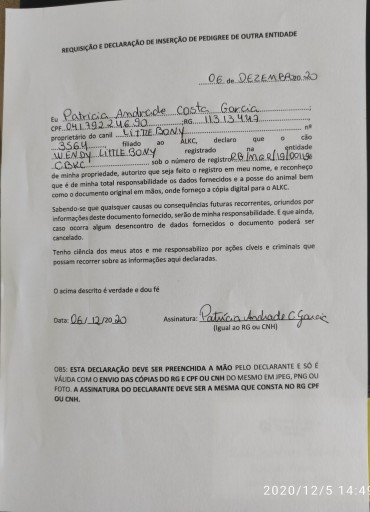 REQUISIÇÃO E DECLARAÇÃO DE INSERÇÃO DE PEDIGREE DE OUTRA ENTIDADE
06 de DEZEMBRO 20 20
Eu Patricia Andrade Costa Garcia
CPF 041.792.246.90 RG 11313447
proprietário do canil LITTLE BONY nº
3564 filiado ao ALKC, declaro que o cão
WENDY LITTLE BONY registrado na entidade
CBKC sob o número de registro
de minha propriedade, autorizo que seja feito o registro em meu nome, e reconheço
que é de minha total responsabilidade os dados fornecidos e a posse do animal bem
como o documento original em mãos, onde forneço a cópia digital para o ALKC.
Sabendo-se que quaisquer causas ou consequências futuras recorrentes, oriundos por
informações deste documento fornecido, serão de minha responsabilidade. E que ainda,
caso ocorra algum desencontro de dados fornecidos o documento poderá ser
cancelado.
Tenho ciência dos meus atos e me responsabilizo por ações cíveis e criminais que
possam recorrer sobre as informações aqui declaradas.
O acima descrito é verdade e dou fé
Data: 06/12/2020 Assinatura: Patricia Andrade C Garcia
(Igual ao RG ou CNH)
OBS: ESTA DECLARAÇÃO DEVE SER PREENCHIDA A MÃO PELO DECLARANTE E SÓ É
VÁLIDA COM O ENVIO DAS CÓPIAS DO RG E CPF OU CNH DO MESMO EM JPEG, PNG OU
FOTO. A ASSINATURA DO DECLARANTE DEVE SER A MESMA QUE CONSTA NO RG CPF
OU CNH.
2020/12/5 14:49